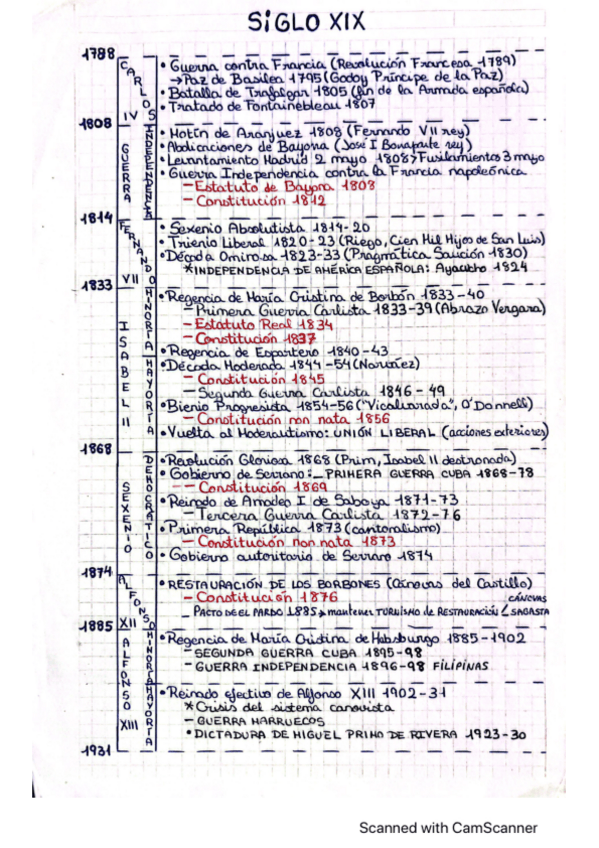 SIGLO XIX
1788
CARLOS IV
• Guerra contra Francia (Revolución Francesa 1789)
→ Paz de Basilea 1795 (Godoy Príncipe de la Paz)
• Batalla de Trafalgar 1805 (fin de la Armada española)
• Tratado de Fontainebleau 1807
1808
GUERRA INDEPENDENCIA
• Motín de Aranjuez 1808 (Fernando VII rey)
• Abdicaciones de Bayona (José I Bonaparte rey)
• Levantamiento Madrid 2 mayo 1808 > Fusilamientos 3 mayo
• Guerra Independencia contra la Francia napoleónica
– Estatuto de Bayona 1808
– Constitución 1812
1814
FERNANDO VII
• Sexenio Absolutista 1814-20
• Trienio Liberal 1820-23 (Riego, Cien Mil Hijos de San Luis)
• Década Ominosa 1823-33 (Pragmática Sanción 1830)
* INDEPENDENCIA DE AMÉRICA ESPAÑOLA: Ayacucho 1824
1833
ISABEL II
MINORÍA
• Regencia de María Cristina de Borbón 1833-40
– Primera Guerra Carlista 1833-39 (Abrazo Vergara)
– Estatuto Real 1834
– Constitución 1837
• Regencia de Espartero 1840-43
MAYORÍA
• Década Moderada 1844-54 (Narváez)
– Constitución 1845
– Segunda Guerra Carlista 1846-49
• Bienio Progresista 1854-56 ("Vicalvarada", O'Donnell)
– Constitución non nata 1856
• Vuelta al Moderantismo: UNIÓN LIBERAL (acciones exteriores)
1868
SEXENIO DEMOCRÁTICO
• Revolución Gloriosa 1868 (Prim, Isabel II destronada)
• Gobierno de Serrano: – PRIMERA GUERRA CUBA 1868-78
– Constitución 1869
• Reinado de Amadeo I de Saboya 1871-73
– Tercera Guerra Carlista 1872-76
• Primera República 1873 (cantonalismo)
– Constitución non nata 1873
• Gobierno autoritario de Serrano 1874
1874
ALFONSO XII
• RESTAURACIÓN DE LOS BORBONES (Cánovas del Castillo)
– Constitución 1876
CÁNOVAS
– PACTO DE EL PARDO 1885 → mantener TURNISMO de RESTAURACIÓN / SAGASTA
1885
ALFONSO XIII
MINORÍA
• Regencia de María Cristina de Habsburgo 1885-1902
– SEGUNDA GUERRA CUBA 1895-98
– GUERRA INDEPENDENCIA 1896-98 FILIPINAS
MAYORÍA
• Reinado efectivo de Alfonso XIII 1902-31
* Crisis del sistema canovista
– GUERRA MARRUECOS
• DICTADURA DE MIGUEL PRIMO DE RIVERA 1923-30
1931
Scanned with CamScanner